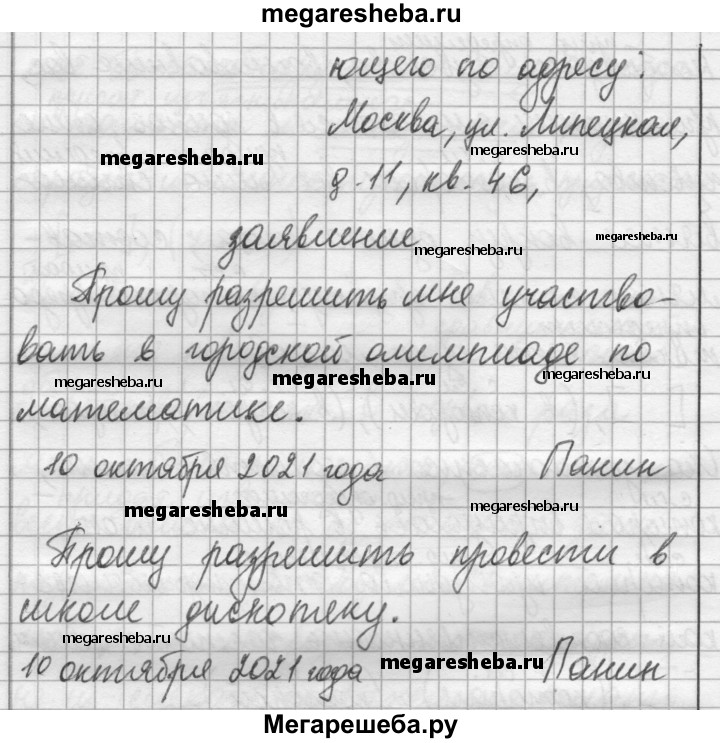 megaresheba.ru
ющего по адресу:
Москва, ул. Липецкая,
megaresheba.ru
megaresheba.ru
д. 11, кв. 46,
заявление
megaresheba.ru
megaresheba.ru
Прошу разрешить мне участво-
вать в городской олимпиаде по
megaresheba.ru
megaresheba.ru
megaresheba.ru
математике.
10 октября 2021 года Панин
megaresheba.ru
megaresheba.ru
Прошу разрешить провести в
школе дискотеку.
megaresheba.ru
10 октября 2021 года Панин
megaresheba.ru
Мегарешеба.ру